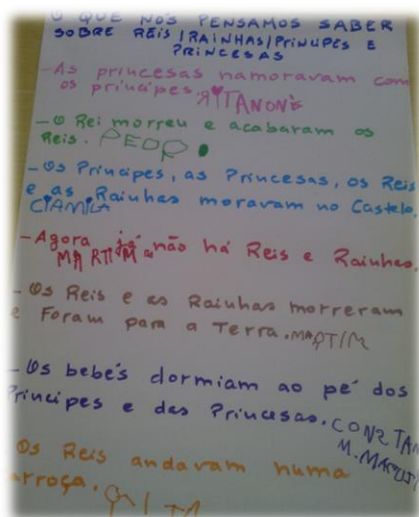 O QUE NÓS PENSAMOS SABER
SOBRE REIS/RAINHAS/PRINCIPES E
PRINCESAS
- As princesas namoravam com
os príncipes. RITANONE
- O Rei morreu e acabaram os
Reis. PEDR
- Os Príncipes, as Princesas, os Reis
e as Rainhas moravam no Castelo.
- Agora já não há Reis e Rainhas.
MARTIM
- Os Reis e as Rainhas morreram
e Foram para a Terra. MARTIM
- Os bebés dormiam ao pé dos
Príncipes e das Princesas.
- Os Reis andavam numa
arroça.